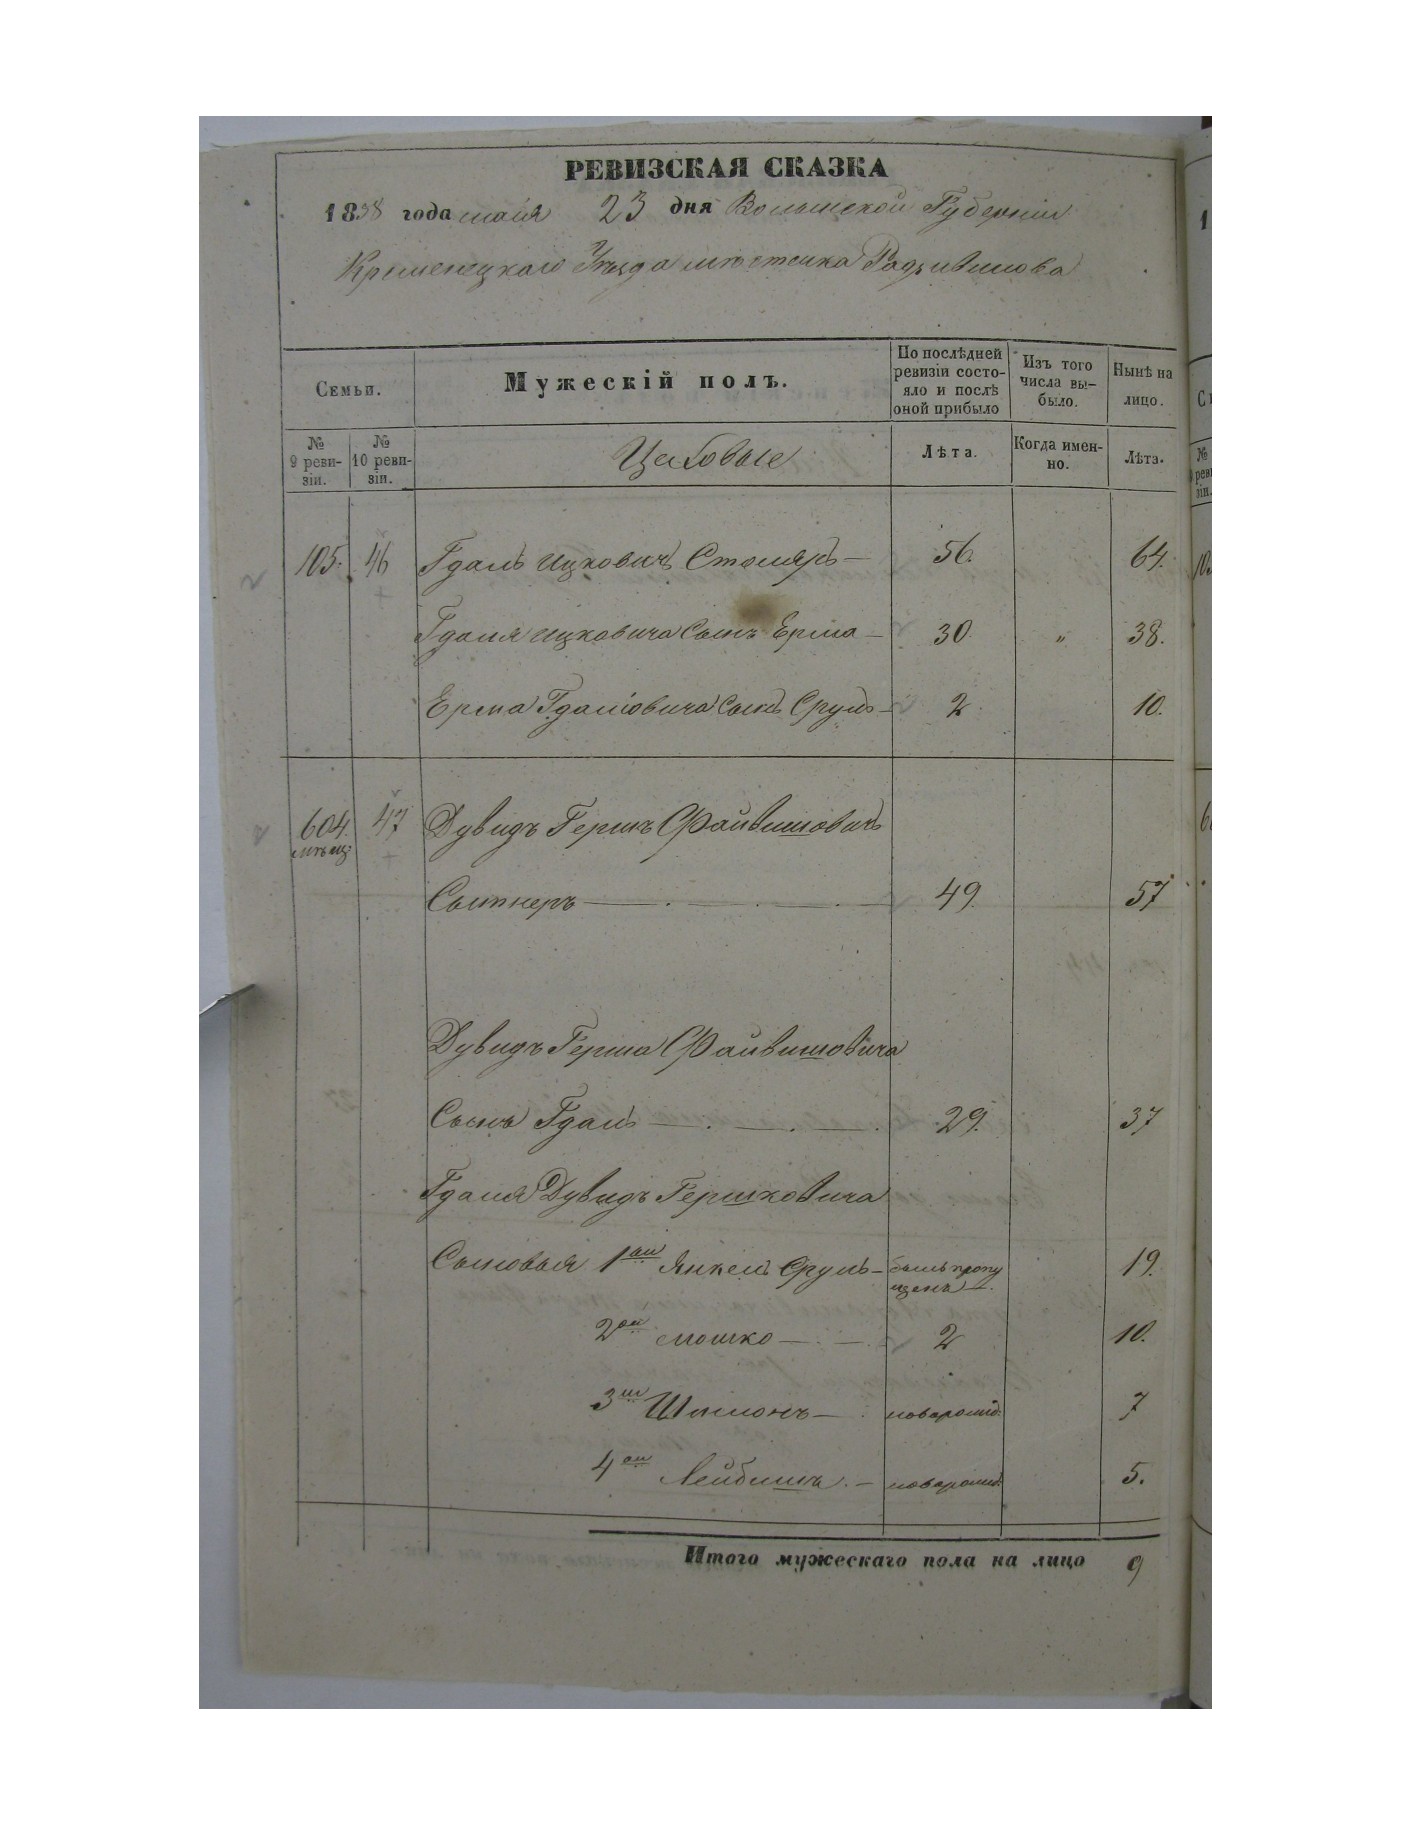 РЕВИЗСКАЯ СКАЗКА
1858 года маія 23 дня Волынской Губерніи
Кременецкаго Уѣзда мѣстечка Радзивилова
Семьи.
Мужескій полъ.
По послѣдней ревизіи состо-яло и послѣ оной прибыло
Изъ того числа вы-было.
Нынѣ на лицо.
№ 9 реви-зіи.
№ 10 реви-зіи.
Цеховые
Лѣта.
Когда имен-но.
Лѣта.
105. 46 Гдаль Ицковичъ Столяръ — 56. 64.
Гдаля Ицковича Сынъ Ерма — 30. „ 38.
Ерма Гдаліовича Сынъ Сруль — 2 10.
604. 47 Дувидъ Гершъ Файвишовичъ
мѣщ:
Сытнеръ — 49. 57
Дувидъ Герша Файвишовича
Сынъ Гдаль — 29. 37
Гдаля Дувидъ Гершковича
Сыновья 1ый Янкель Сруль — былъ пропу 19.
щенъ —.
2ой Мошко — 2 10.
3ій Шимонъ — новорожд: 7
4ый Лейбишъ. — новорожд: 5.
Итого мужескаго пола на лицо 9